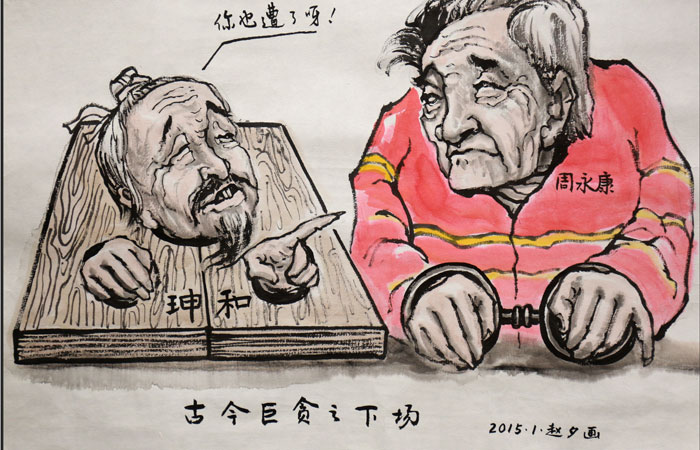 你也遭了呀！
周永康
珅和
古今巨贪之下场
2015.1.赵夕画